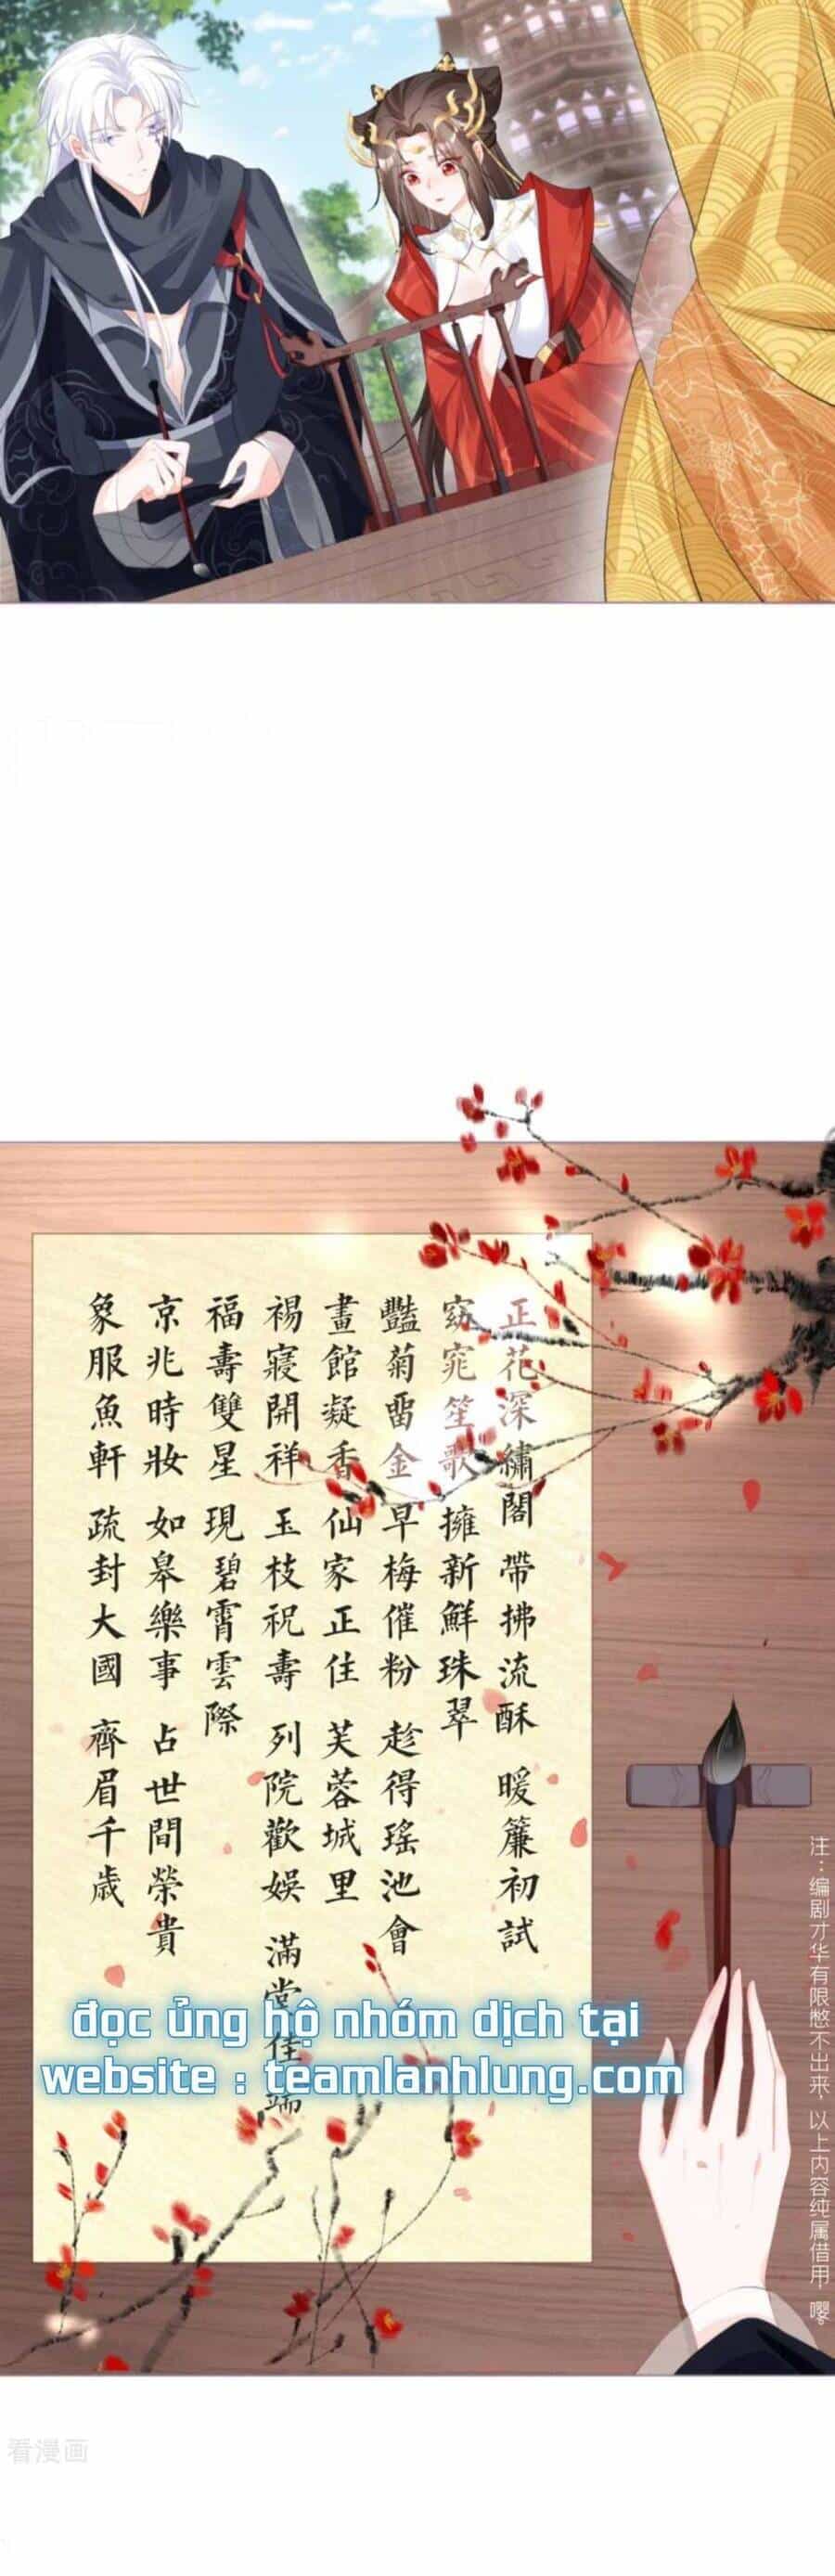 正花深繡閣 帶拂流酥 暖簾初試
窈窕笙歌 擁新鮮珠翠
豔菊畱金 早梅催粉 趁得瑤池會
畫館凝香 仙家正住 芙蓉城里
禓寢開祥 玉枝祝壽 列院歡娛 滿堂佳瑞
福壽雙星 現碧霄雲際
京兆時妝 如皋樂事 占世間榮貴
象服魚軒 疏封大國 齊眉千歲
注：编剧才华有限憋不出来，以上内容纯属借用，嘤。
đọc ủng hộ nhóm dịch tại
website : teamlanhlung.com
看漫画